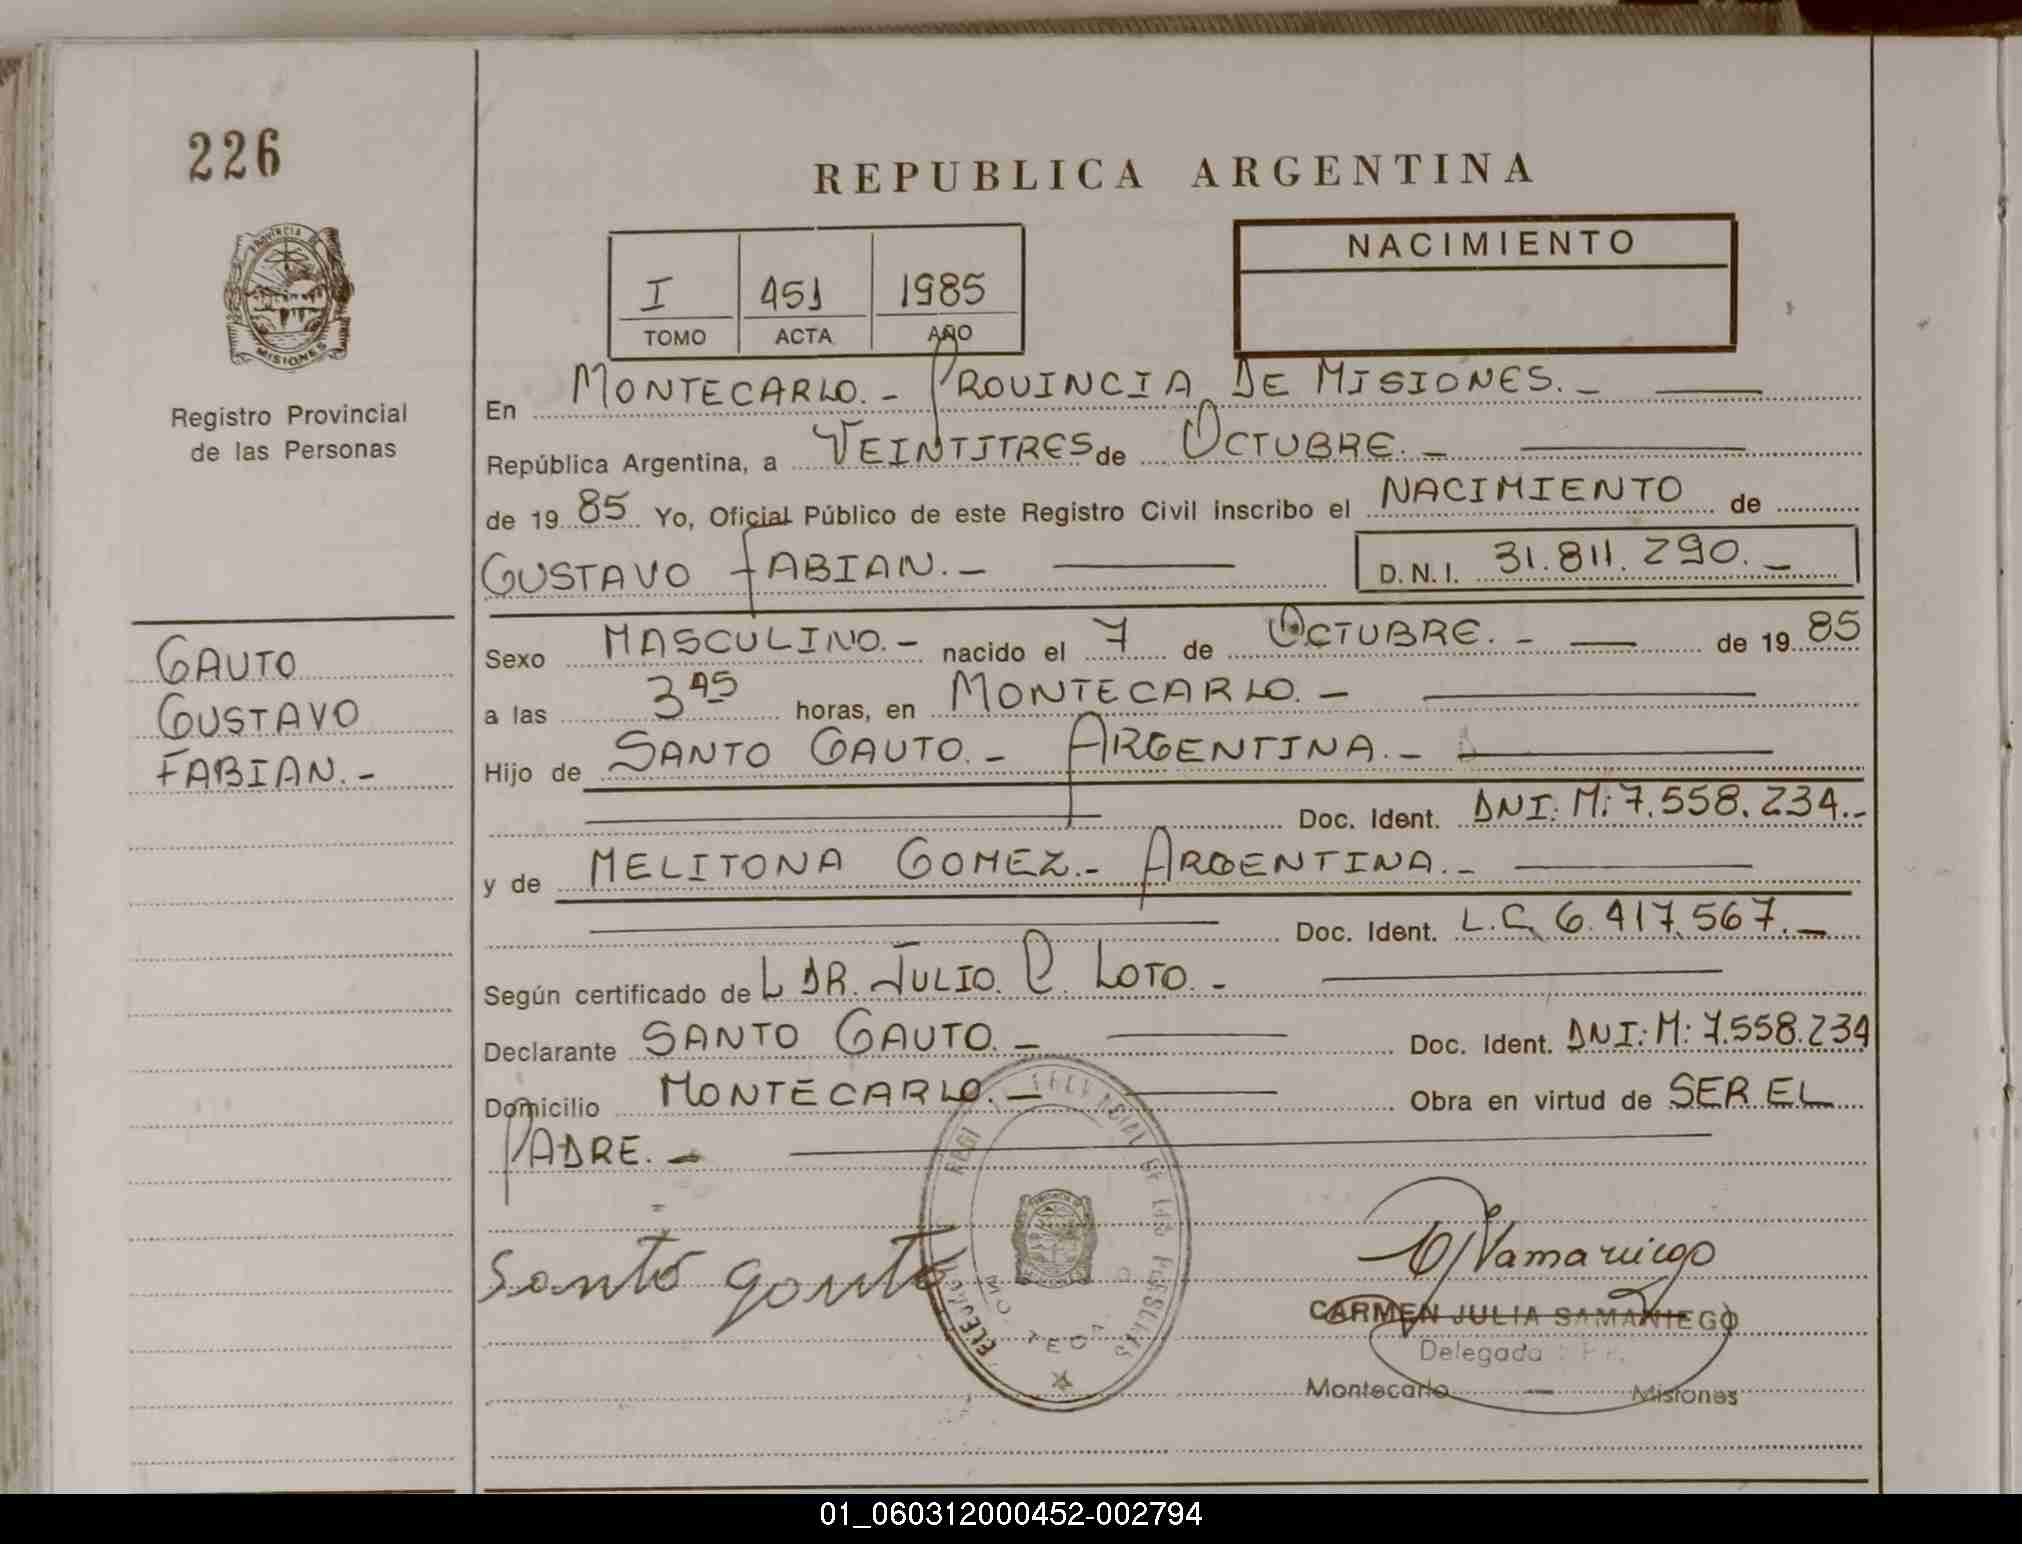 226
REPUBLICA ARGENTINA
PROVINCIA DE
MISIONES
Registro Provincial
de las Personas
NACIMIENTO
I 451 1985
TOMO ACTA AÑO
En MONTECARLO.- PROVINCIA DE MISIONES.-
República Argentina, a VEINTITRES de OCTUBRE.-
de 1985 Yo, Oficial Público de este Registro Civil inscribo el NACIMIENTO de
GUSTAVO FABIAN.- D.N.I. 31.811.290.-
GAUTO
GUSTAVO
FABIAN.-
Sexo MASCULINO.- nacido el 7 de OCTUBRE.- de 1985
a las 3 45 horas, en MONTECARLO.-
Hijo de SANTO GAUTO.- ARGENTINA.-
Doc. Ident. DNI: M: 7.558.234.-
y de MELITONA GOMEZ.- ARGENTINA.-
Doc. Ident. L.C. 6.417.567.-
Según certificado de L DR. JULIO. C. LOTO.-
Declarante SANTO GAUTO.- Doc. Ident. DNI: M: 7.558.234
Domicilio MONTECARLO.- Obra en virtud de SER EL
PADRE.-
Santo gauto
CARMEN JULIA SAMANIEGO
Delegada
Montecarlo - Misiones
DE LAS PERSONAS
01_060312000452-002794